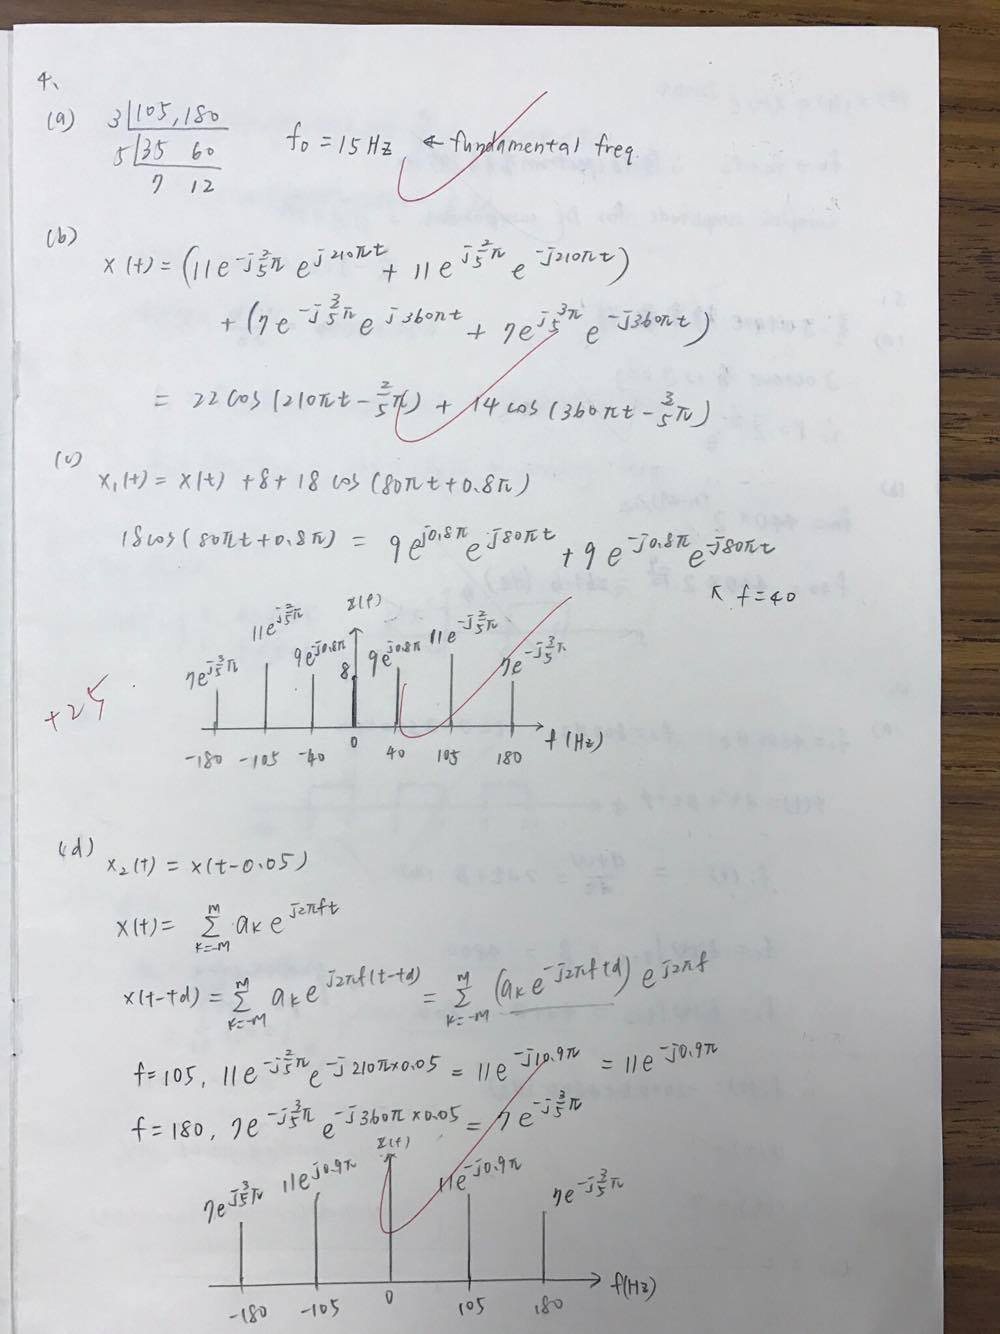 4、
(a) 3 | 105, 180
5 | 35 60
7 12
f₀ = 15 Hz ← fundamental freq.
(b)
x(t) = (11e^{-j\frac{2}{5}π} e^{j210πt} + 11e^{j\frac{2}{5}π} e^{-j210πt})
+ (7e^{-j\frac{3}{5}π} e^{j360πt} + 7e^{j\frac{3}{5}π} e^{-j360πt})
= 22cos(210πt - \frac{2}{5}π) + 14cos(360πt - \frac{3}{5}π)
(c)
x₁(t) = x(t) + 8 + 18 cos(80πt + 0.8π)
18cos(80πt + 0.8π) = 9e^{j0.8π} e^{j80πt} + 9e^{-j0.8π} e^{-j80πt}
↖ f = 40
X(f)
7e^{j\frac{3}{5}π} 11e^{j\frac{2}{5}π} 9e^{j0.8π} 8 9e^{j0.8π} 11e^{-j\frac{2}{5}π} 7e^{-j\frac{3}{5}π}
-180 -105 -40 0 40 105 180 f(Hz)
+25
(d)
x₂(t) = x(t-0.05)
x(t) = \sum_{k=-M}^{M} a_k e^{j2πft}
x(t-td) = \sum_{k=-M}^{M} a_k e^{j2πf(t-td)} = \sum_{k=-M}^{M} (a_k e^{-j2πftd}) e^{j2πf}
f=105, 11e^{-j\frac{2}{5}π} e^{-j210π×0.05} = 11e^{-j10.9π} = 11e^{-j0.9π}
f=180, 7e^{-j\frac{3}{5}π} e^{-j360π×0.05} = 7e^{-j\frac{3}{5}π}
X(f)
7e^{j\frac{3}{5}π} 11e^{j0.9π} 11e^{-j0.9π} 7e^{-j\frac{3}{5}π}
-180 -105 0 105 180 f(Hz)